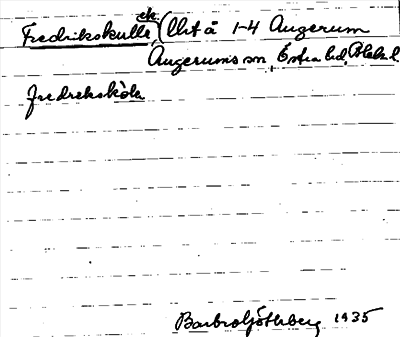 Fredrikskulle, ek. (lht å 1-4 Augerum
Augerums sn, Östra hd, Blek. l.
fredreksköla
Barbro Götherberg 1935